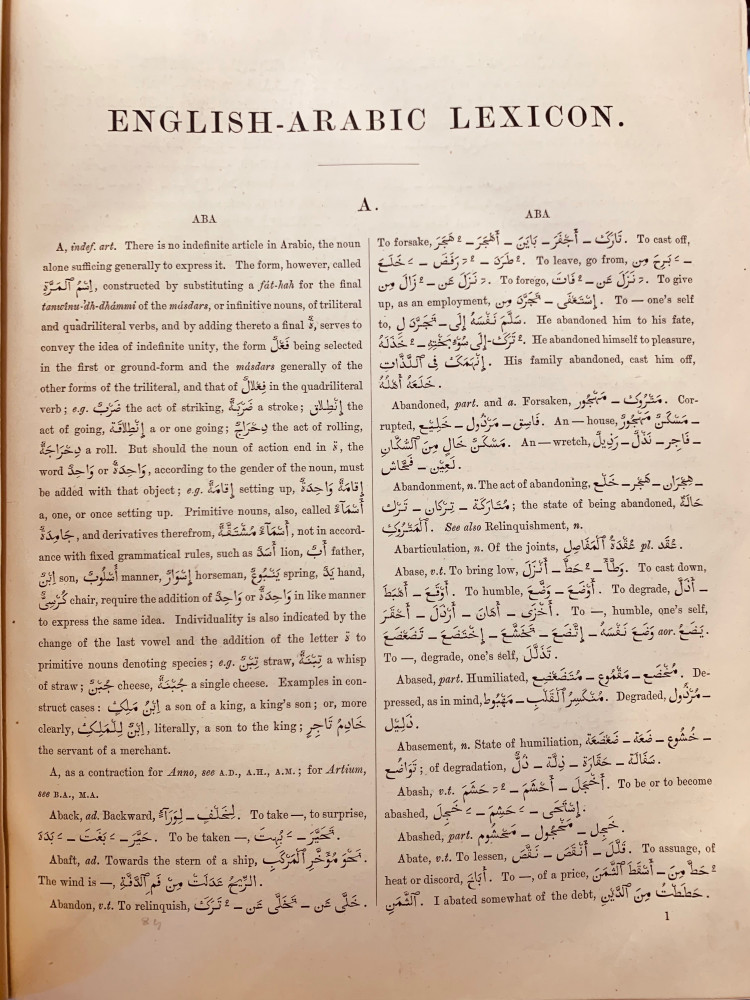 ENGLISH-ARABIC LEXICON.
A.
ABA
A, indef. art. There is no indefinite article in Arabic, the noun
alone sufficing generally to express it. The form, however, called
إِسْمُ ٱلْمَرَّةِ, constructed by substituting a fát-hah for the final
tanwînu-'dh-dhámmi of the másdars, or infinitive nouns, of triliteral
and quadriliteral verbs, and by adding thereto a final ةٌ, serves to
convey the idea of indefinite unity, the form فَعْلٌ being selected
in the first or ground-form and the másdars generally of the
other forms of the triliteral, and that of فِعْلَالٌ in the quadriliteral
verb; e.g. ضَرْبٌ the act of striking, ضَرْبَةٌ a stroke; إِنْطِلَاقٌ the
act of going, إِنْطِلَاقَةٌ a or one going; دِحْرَاجٌ the act of rolling,
دِحْرَاجَةٌ a roll. But should the noun of action end in ةٌ, the
word وَاحِدٌ or وَاحِدَةٌ, according to the gender of the noun, must
be added with that object; e.g. إِقَامَةٌ setting up, إِقَامَةٌ وَاحِدَةٌ
a, one, or once setting up. Primitive nouns, also, called أَسْمَآءٌ
جَامِدَةٌ, and derivatives therefrom, أَسْمَآءٌ مُشْتَقَّةٌ, not in accord-
ance with fixed grammatical rules, such as أَسَدٌ lion, أَبٌ father,
إِبْنٌ son, أُسْلُوبٌ manner, إِسْوَارٌ horseman, يَنْبُوعٌ spring, يَدٌ hand,
كُرْسِيٌّ chair, require the addition of وَاحِدٌ or وَاحِدَةٌ in like manner
to express the same idea. Individuality is also indicated by the
change of the last vowel and the addition of the letter ةٌ to
primitive nouns denoting species; e.g. تِبْنٌ straw, تِبْنَةٌ a whisp
of straw; جُبْنٌ cheese, جُبْنَةٌ a single cheese. Examples in con-
struct cases: إِبْنُ مَلِكٍ a son of a king, a king's son; or, more
clearly, إِبْنٌ لِلْمَلِكِ, literally, a son to the king; خَادِمُ تَاجِرٍ
the servant of a merchant.
A, as a contraction for Anno, see A.D., A.H., A.M.; for Artium,
see B.A., M.A.
Aback, ad. Backward, لِوَرَآءَ – لِخَلْفٍ. To take —, to surprise,
حَيَّرَ – بَغَتَ – بَدَهَ. To be taken —, تَحَيَّرَ – بُهِتَ.
Abaft, ad. Towards the stern of a ship, نَحْوَ مُؤَخَّرِ ٱلْمَرْكَبِ.
The wind is —, الرِّيحُ عَدَلَتْ مِنْ فَمِ ٱلدَّفَّةِ.
Abandon, v.t. To relinquish, تَرَكَ – تَخَلَّى عَن – خَلَّى عَن.
ABA
To forsake, هَجَرَ – أَهْجَرَ – بَايَنَ – أَجْفَرَ – تَارَكَ. To cast off,
خَلَعَ – رَفَضَ – طَرَدَ. To leave, go from, بَرِحَ مِن –
زَالَ مِن – نَزَلَ عَن. To forego, فَاتَ – نَزَلَ عَن. To give
up, as an employment, تَجَرَّدَ مِن – إِسْتَعْفَى. To — one's self
to, تَجَرَّدَ لِ – سَلَّمَ نَفْسَهُ إِلَى. He abandoned him to his fate,
خَذَلَهُ – تَرَكَ إِلَى سُوْءِ بَخْتِهِ. He abandoned himself to pleasure,
إِنْهَمَكَ فِي ٱللَّذَّاتِ. His family abandoned, cast him off,
خَلَعَهُ أَهْلُهُ.
Abandoned, part. and a. Forsaken, مَهْجُور – مَتْرُوك. Cor-
rupted, خَلِيع – مَرْذُول – فَاسِق. An — house, مَسْكَنٌ مَهْجُورٌ –
مَسْكَنٌ خَالٍ مِنَ ٱلسُّكَّانِ. An — wretch, رَذِيلٌ – نَذْلٌ – فَاجِر –
فَحَّاش – لَعِين.
Abandonment, n. The act of abandoning, خَلْع – هَجْر – هِجْرَان –
تَرْك – تِرْكَان – مُتَارَكَة; the state of being abandoned, حَالَةُ
ٱلْمَتْرُوكِ. See also Relinquishment, n.
Abarticulation, n. Of the joints, عُقْدَةُ ٱلْمَفَاصِلِ pl. عُقَد.
Abase, v.t. To bring low, أَنْزَلَ – حَطَّ – وَطَّأَ. To cast down,
أَهْبَطَ – أَوْقَعَ. To humble, وَضَعَ – أَوْضَعَ. To degrade, أَذَلَّ –
أَحْقَرَ – أَرْذَلَ – أَهَانَ – أَخْزَى. To —, humble, one's self,
تَضَعْضَعَ – إِخْتَضَعَ – تَخَشَّعَ – إِتَّضَعَ – وَضَعَ نَفْسَهُ aor. يَضَعُ.
To —, degrade, one's self, تَذَلَّلَ.
Abased, part. Humiliated, مُتَضَعْضِع – مَقْمُوع – مُتَّضِع. De-
pressed, as in mind, مَهْبُوط – مُنْكَسِرُ ٱلْقَلْبِ. Degraded, مَرْذُول –
ذَلِيل.
Abasement, n. State of humiliation, ضَعْضَعَة – ضَعَة – خُشُوع –
تَوَاضُع; of degradation, ذُلّ – ذِلَّة – حَقَارَة – سَفَالَة.
Abash, v.t. حَشَمَ – أَحْشَمَ – أَخْجَلَ. To be or to become
abashed, خَجِلَ – حَشِمَ – إِسْتَحَى.
Abashed, part. مَحْشُوم – مَخْجُول – خَجِل.
Abate, v.t. To lessen, نَقَّصَ – أَنْقَصَ – قَلَّلَ. To assuage, of
heat or discord, أَبَاخَ. To —, of a price, حَطَّ مِنَ – أَسْقَطَ ٱلثَّمَنَ
ٱلثَّمَنِ. I abated somewhat of the debt, حَطَطْتُ مِنَ ٱلدَّيْنِ.
1